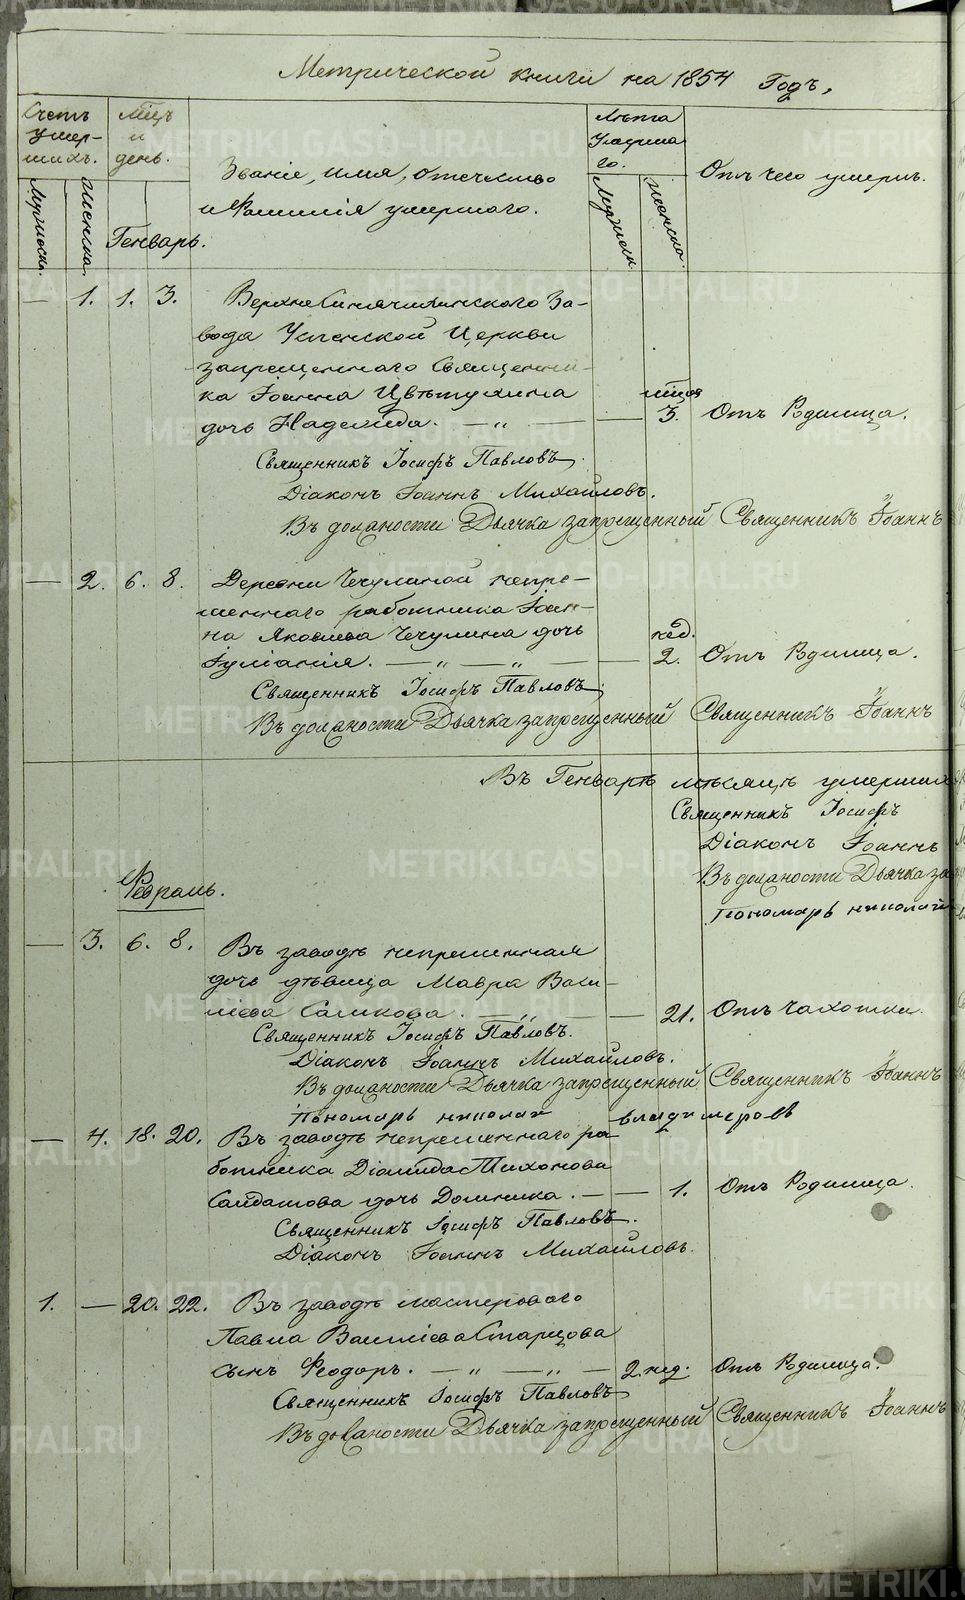 Метрической книги на 1854 Годъ,
Счетъ умер-шихъ.
Мѣцъ и день.
Званіе, имя, отечество
и Фамилія умершаго.
Лѣта Умершаго.
Отъ чего умеръ.
Мужеска.
Женска.
Генварь.
Мужеска.
Женска.
— 1. 1. 3. Верхне Синячихинскаго За-
вода Успенской Церкви
запрещеннаго Священни-
ка Іоанна Цвѣтухина
мѣцов
дочь Надежда. — „ — — 3. Отъ Родимца.
Священникъ Іосифъ Павловъ.
Діаконъ Іоаннъ Михайловъ.
Въ должности Дьячка запрещенный Священникъ Іоаннъ
— 2. 6. 8. Деревни Чечулиной непре-
меннаго работника Іоан-
на Яковлева Чечулина дочь
нед.
Іуліанія. — „ — „ — — 2. Отъ Родимца.
Священникъ Іосифъ Павловъ
Въ должности Дьячка запрещенный Священникъ Іоаннъ
Въ Генварѣ мѣсяцѣ умерших
Священникъ Іосифъ
Діаконъ Іоаннъ
Въ должности Дьячка за
Пономарь николай
Февраль.
— 3. 6. 8. Въ заводѣ непременная
дочь дѣвица Мавра Васи-
ліева . — „ — — 21. Отъ Чахотки.
Священникъ Іосифъ Павловъ.
Діаконъ Іоаннъ Михайловъ.
Въ должности Дьячка запрещенный Священникъ Іоаннъ
Пономарь николай владимеровъ
— 4. 18. 20. Въ заводѣ непременнаго ра-
ботника Діомида Тихонова
дочь Домника. — — 1. Отъ Родимца.
Священникъ Іосифъ Павловъ.
Діаконъ Іоаннъ Михайловъ.
1. — 20. 22. Въ заводѣ мастероваго
Павла Василіева Старцова
сынъ Феодоръ. — „ — „ — 2. нед. Отъ Родимца.
Священникъ Іосифъ Павловъ
Въ должности Дьячка запрещенный Священникъ Іоаннъ
METRIKI.GASO-URAL.RU